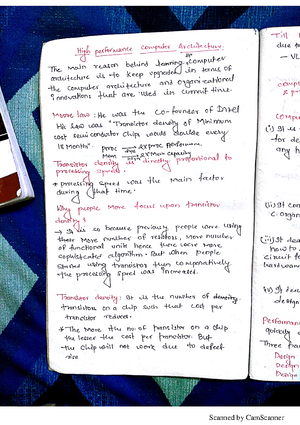 High performance computer Architecture.
The main reason behind learning of computer
architecture is to keep upgraded in terms of
the computer architecture and organizational
innovations that are used in current time.
More law: He was the co-founer of Intel
His law was "Transistor density of Minimum
cost semiconductor chip would double every
18 months".
Transistor density is directly proportional to
processing speed.
* processing speed was the main factor
during that time.
Why people more focus upon transistor
density?
→ It is so because previously people were using
more number of resistors, more number
of functional units hence there were more
sophisticated algorithm. But when people
started using transistor then comparatively
the processing speed was increased.
Transistor density: It is the number of
transistor on a chip such that cost per
transistor reduces.
* The more the no. of transistor on a chip
the lesser the cost per transistor. But
the chip will not work due to defect
size
Till
due to
- VL
Comp
(i) It
for de
any
(ii) It con
(iii) It dea
how to
circuit
v) It dea
design
Performan
Three
Design
Design
Design
Scanned by CamScanner